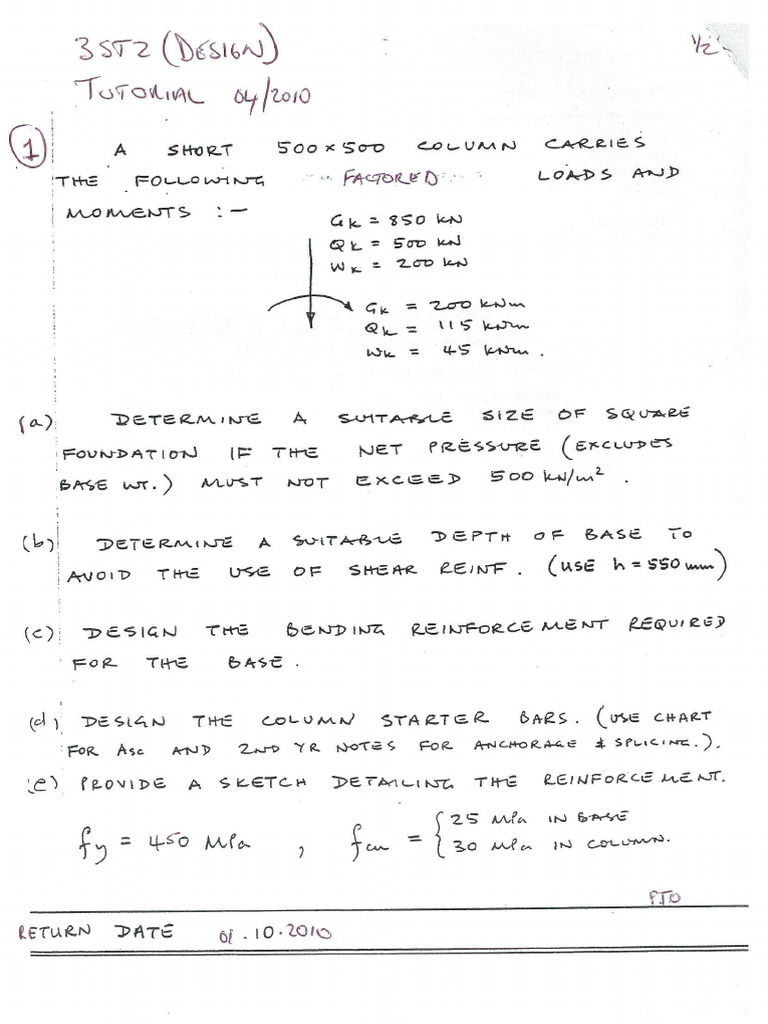 3ST2 (DESIGN)
1/2
TUTORIAL 04/2010
1 A SHORT 500×500 COLUMN CARRIES
THE FOLLOWING FACTORED LOADS AND
MOMENTS :-
Gk = 850 kN
Qk = 500 kN
Wk = 200 kN
Gk = 200 kNm
Qk = 115 kNm
Wk = 45 kNm.
(a) DETERMINE A SUITABLE SIZE OF SQUARE
FOUNDATION IF THE NET PRESSURE (EXCLUDES
BASE WT.) MUST NOT EXCEED 500 kN/m².
(b) DETERMINE A SUITABLE DEPTH OF BASE TO
AVOID THE USE OF SHEAR REINF. (USE h = 550 mm)
(c) DESIGN THE BENDING REINFORCEMENT REQUIRED
FOR THE BASE.
(d) DESIGN THE COLUMN STARTER BARS. (USE CHART
FOR Asc AND 2ND YR NOTES FOR ANCHORAGE & SPLICING.).
(e) PROVIDE A SKETCH DETAILING THE REINFORCEMENT.
fy = 450 MPa , fcu = { 25 MPa IN BASE
30 MPa IN COLUMN.
PTO
RETURN DATE 01.10.2010